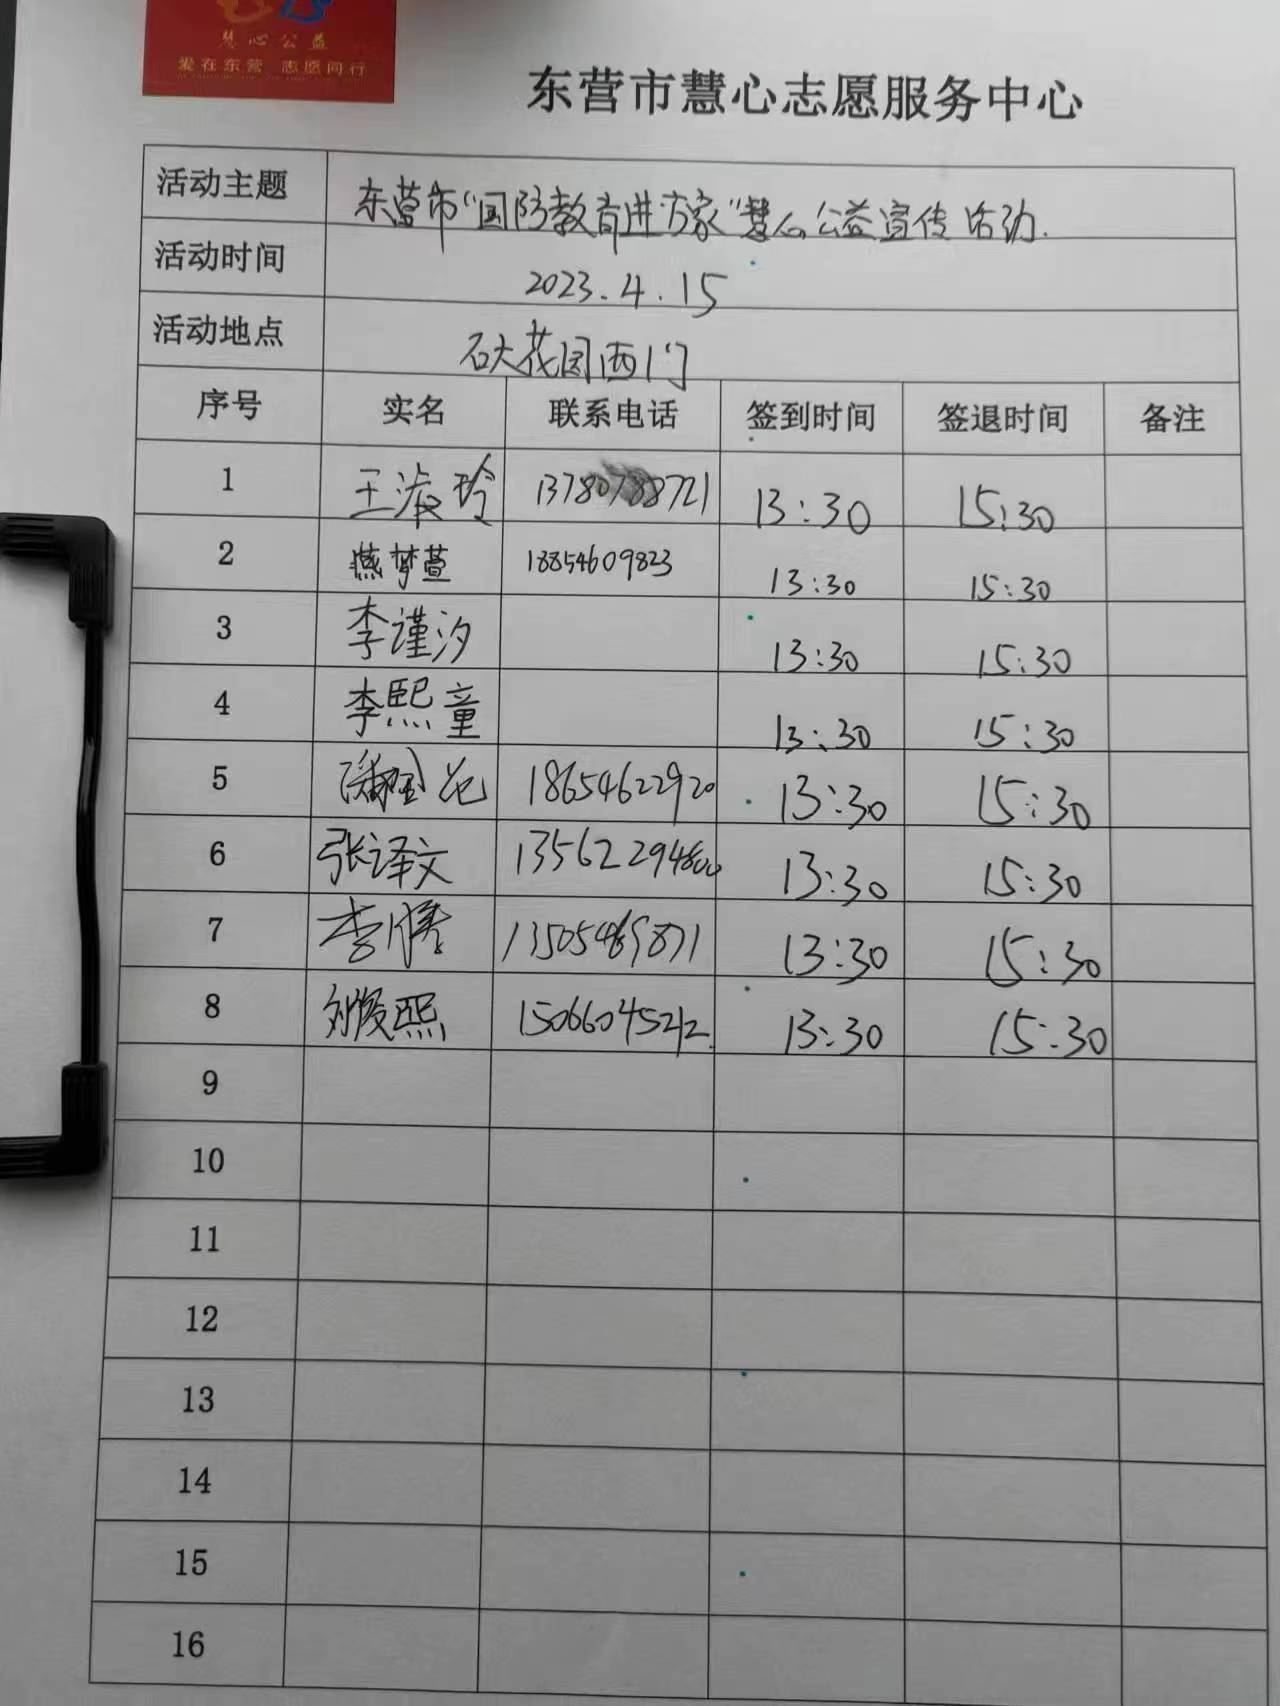 慧心公益
爱在东营 志愿同行
东营市慧心志愿服务中心
活动主题 东营市“国防教育进万家”慧心公益宣传活动.
活动时间 2023.4.15
活动地点 石大花园西门
序号 实名 联系电话 签到时间 签退时间 备注
1 王淑玲 13780788721 13:30 15:30
2 燕梦萱 18854609823 13:30 15:30
3 李谨汐 13:30 15:30
4 李熙童 13:30 15:30
5 18654622920 13:30 15:30
6 张译文 13:30 15:30
7 李 13:30 15:30
8 刘俊熙 15066045212 13:30 15:30
9
10
11
12
13
14
15
16